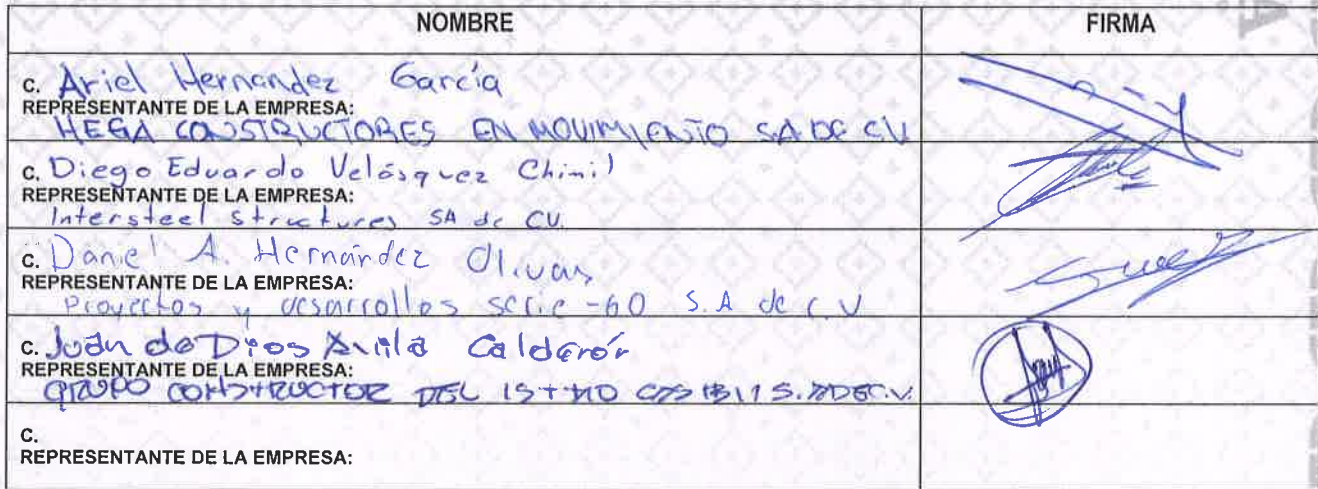 NOMBRE FIRMA
C. Ariel Hernandez García
REPRESENTANTE DE LA EMPRESA:
HEGA CONSTRUCTORES EN MOVIMIENTO SA DE CV
C. Diego Eduardo Velásquez Chimil
REPRESENTANTE DE LA EMPRESA:
Intersteel Structures SA de CV.
C. Daniel A. Hernández Olivas
REPRESENTANTE DE LA EMPRESA:
Proyectos y desarrollos serie-60 S.A de C.V
C. Juan de Dios Avila Calderón
REPRESENTANTE DE LA EMPRESA:
GRUPO CONSTRUCTOR DEL ISTMO S.A DE C.V.
C.
REPRESENTANTE DE LA EMPRESA: